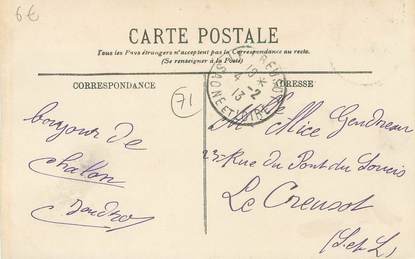 6€
CARTE POSTALE
Tous les Pays étrangers n'acceptent pas la Correspondance au recto.
(Se renseigner à la Poste)
CORRESPONDANCE
ADRESSE
71
bonjour de
Chalon
Melle Alice Gendreau
Rue du Pont du
Le Creusot
(S. et L.)